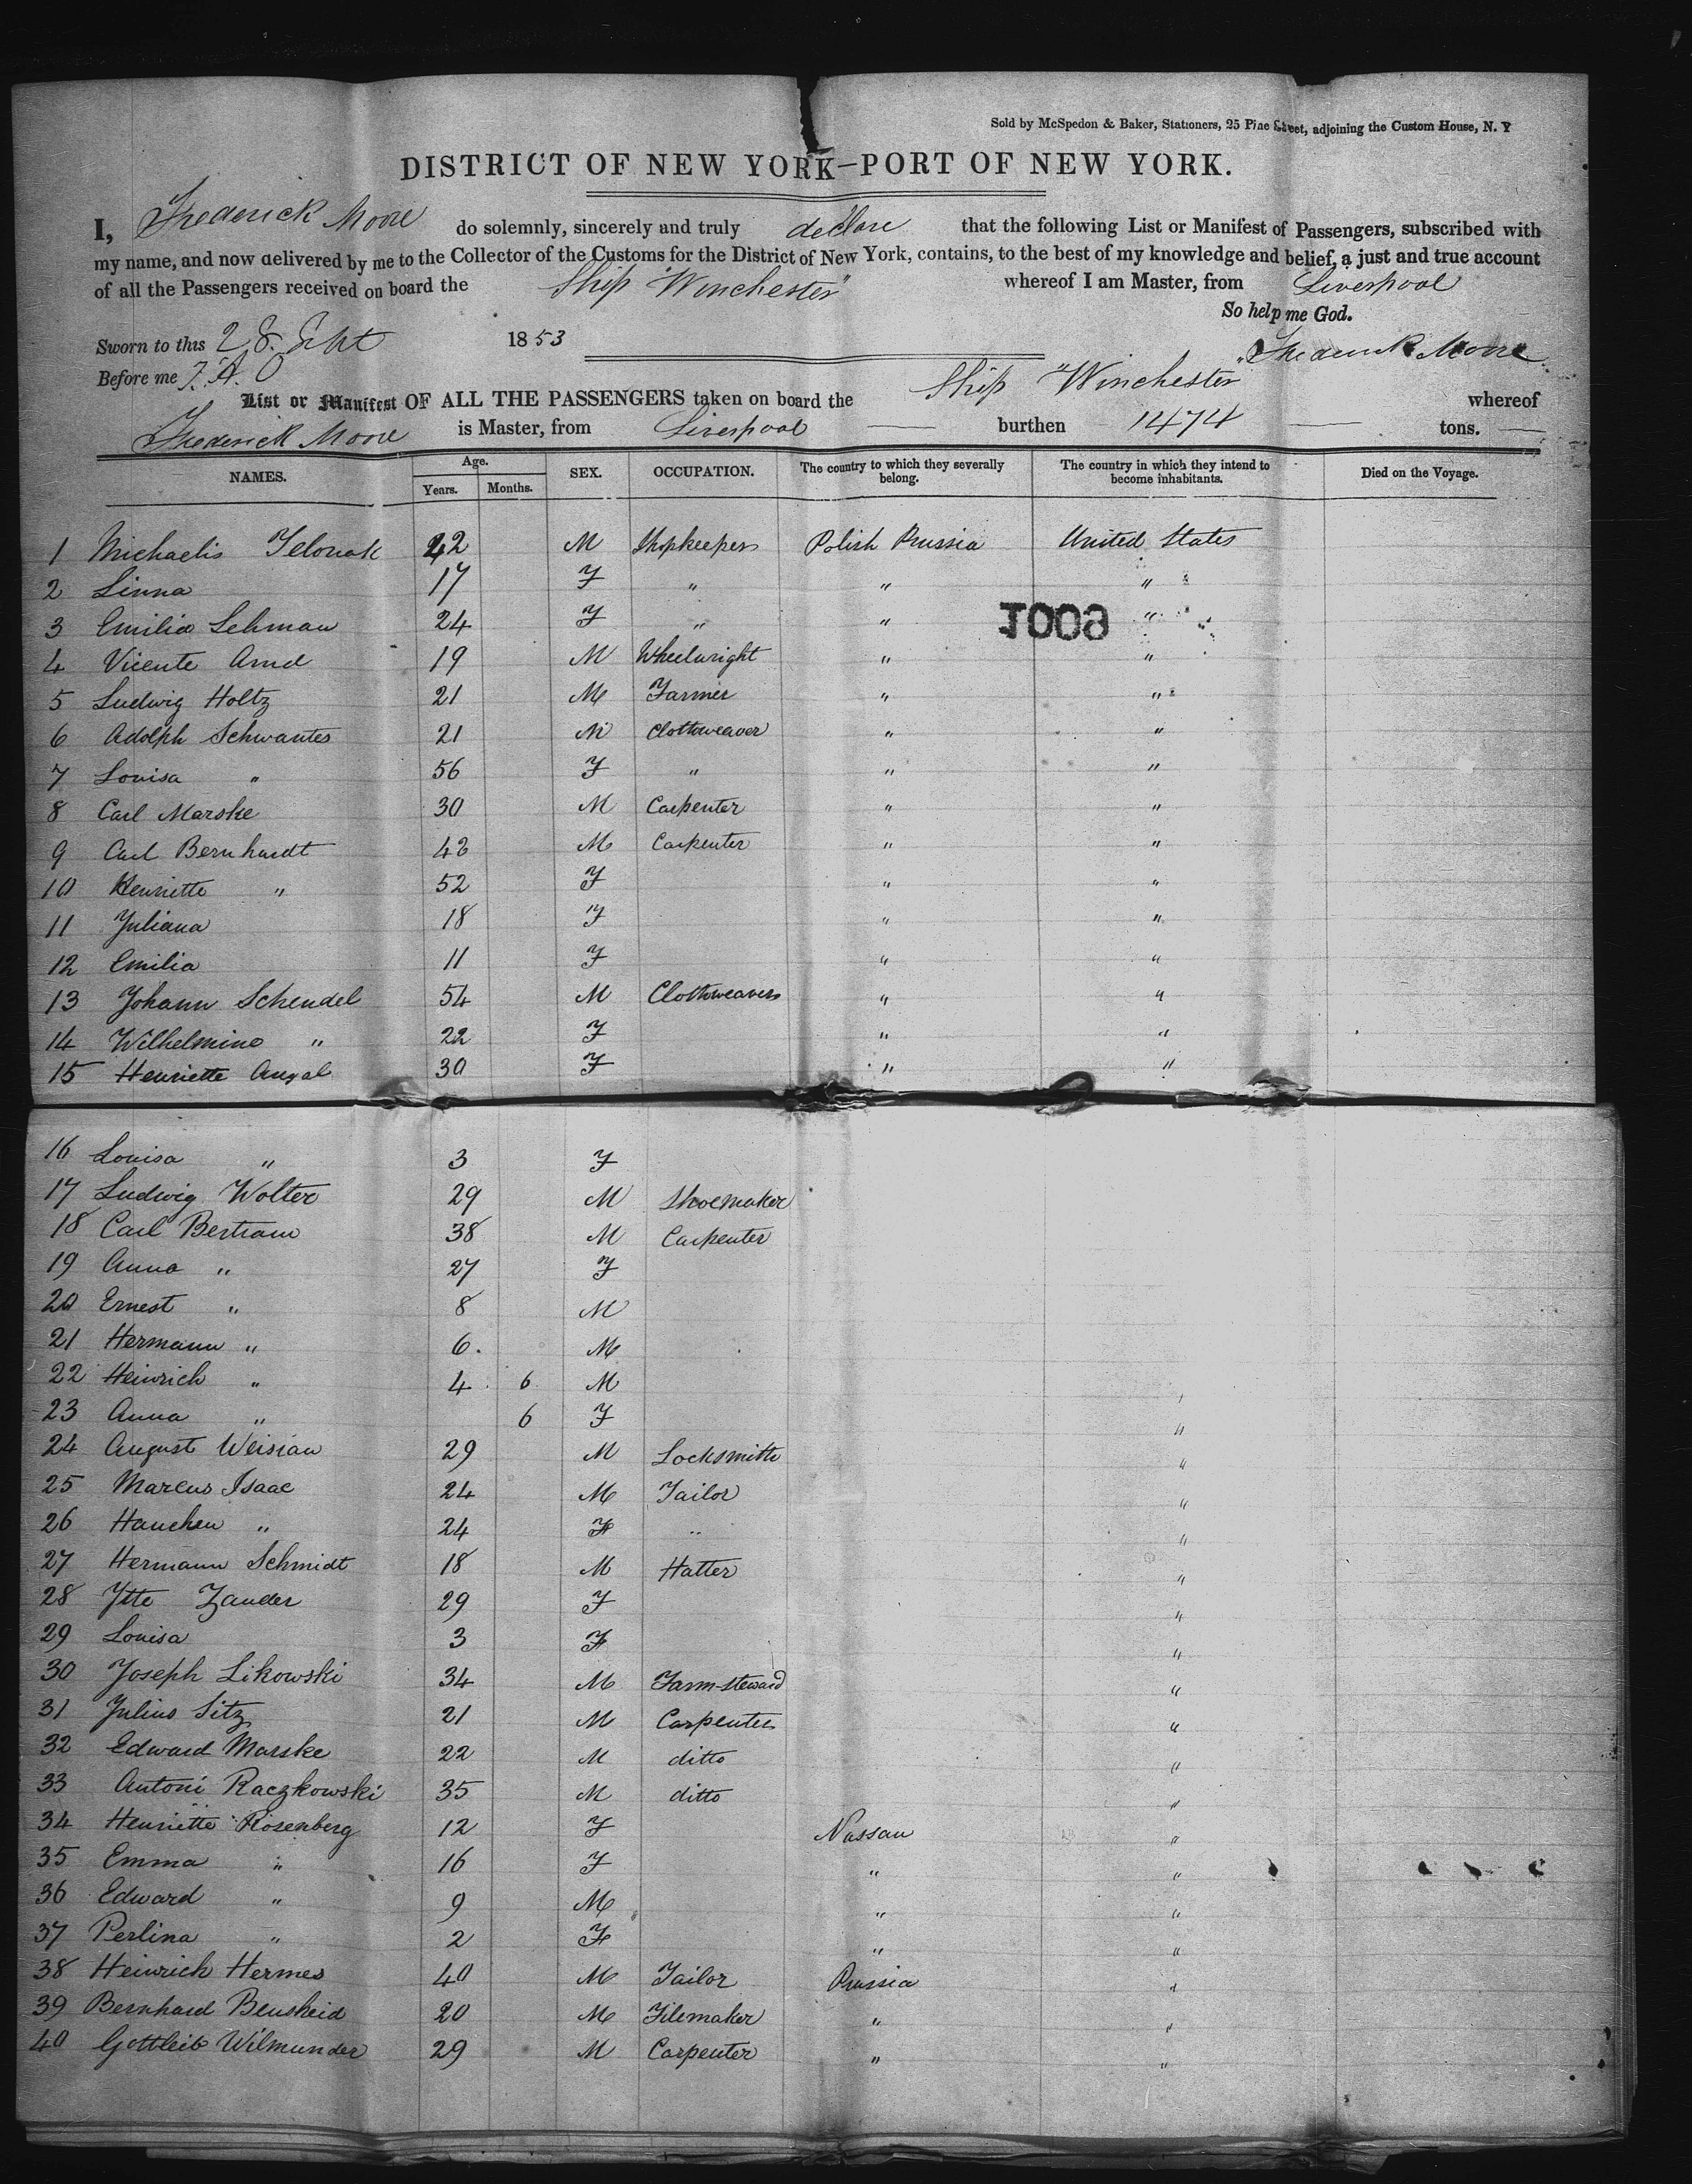 Sold by McSpedon & Baker, Stationers, 25 Pine Street, adjoining the Custom House, N. Y
DISTRICT OF NEW YORK—PORT OF NEW YORK.
I, Frederick Moore do solemnly, sincerely and truly declare that the following List or Manifest of Passengers, subscribed with
my name, and now delivered by me to the Collector of the Customs for the District of New York, contains, to the best of my knowledge and belief, a just and true account
of all the Passengers received on board the Ship "Winchester" whereof I am Master, from Liverpool
So help me God.
Sworn to this 28. Sept 1853
Frederick Moore
Before me J. A. O
List or Manifest OF ALL THE PASSENGERS taken on board the Ship "Winchester" whereof
Frederick Moore is Master, from Liverpool — burthen 1474 — tons. —
NAMES. Age. Years. Months. SEX. OCCUPATION. The country to which they severally belong. The country in which they intend to become inhabitants. Died on the Voyage.
1 Michaelis Jelonak 42 M Shopkeeper Polish Prussia United States
2 Linna 17 F " " "
3 Emilia Lehman 24 F " " "
1009
4 Vicente Arnd 19 M Wheelwright " "
5 Ludwig Holtz 21 M Farmer " "
6 Adolph Schwantes 21 M Clothweaver " "
7 Louisa " 56 F " " "
8 Carl Marske 30 M Carpenter " "
9 Carl Bernhardt 42 M Carpenter " "
10 Henriette " 52 F " "
11 Juliana 18 F " "
12 Emilia 11 F " "
13 Johann Schendel 54 M Clothweavers " "
14 Wilhelmine " 22 F " "
15 Henriette 30 F " "
16 Louisa " 3 F
17 Ludwig Wolter 29 M Shoemaker
18 Carl Bertram 38 M Carpenter
19 Anna " 27 F
20 Ernest " 8 M
21 Hermann " 6. M
22 Heinrich " 4 6 M
23 Anna " 6 F "
24 August Weisian 29 M Locksmith "
25 Marcus Isaac 24 M Tailor "
26 Hanchen " 24 F " "
27 Hermann Schmidt 18 M Hatter "
28 Jtte Zander 29 F "
29 Louisa 3 F "
30 Joseph Likowski 34 M Farm-steward "
31 Julius Sitz 21 M Carpenter "
32 Edward Marske 22 M ditto "
33 Antoni Raczkowski 35 M ditto "
34 Henriette Rosenberg 12 F Nassau "
35 Emma " 16 F " "
36 Edward " 9 M " "
37 Perlina " 2 F " "
38 Heinrich Hermes 40 M Tailor Prussia "
39 Bernhard Bensheid 20 M Filemaker " "
40 Gottleib Wilmunder 29 M Carpenter " "